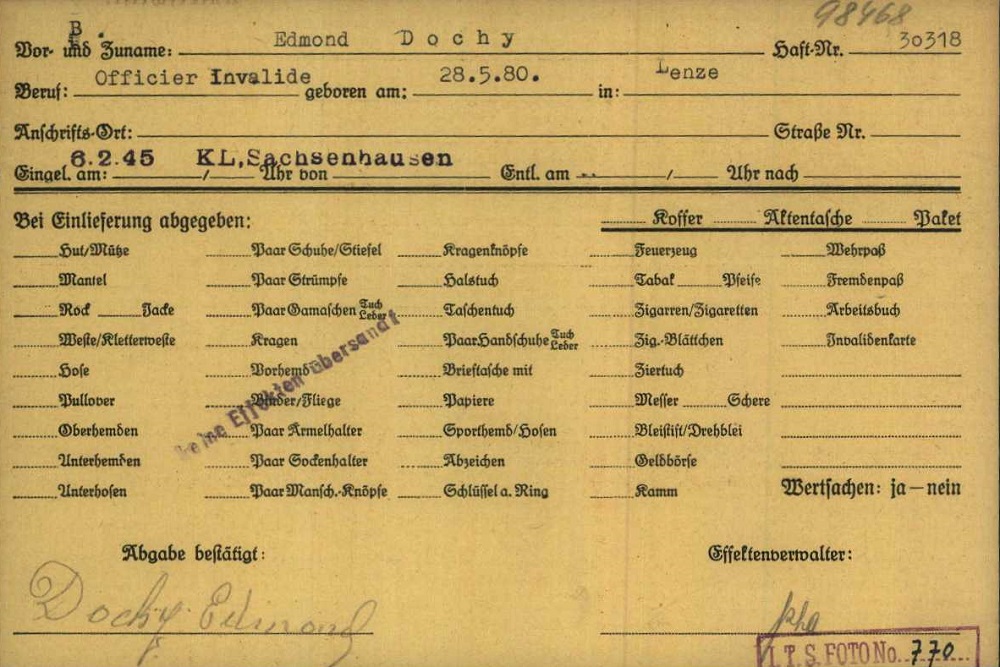 98468
B.
Vor- und Zuname: Edmond Dochy Haft-Nr. 30318
Beruf: Officier Invalide geboren am: 28.5.80. in: Lenze
Anschrifts-Ort: Straße Nr.
Eingel. am: 6.2.45 / Uhr von KL,Sachsenhausen Entl. am / Uhr nach
Bei Einlieferung abgegeben: Koffer Aktentasche Paket
Hut/Mütze Paar Schuhe/Stiefel Kragenknöpfe Feuerzeug Wehrpaß
Mantel Paar Strümpfe Halstuch Tabak Pfeife Fremdenpaß
Rock Jacke Paar Gamaschen Tuch Leder Taschentuch Zigarren/Zigaretten Arbeitsbuch
Weste/Kletterweste Kragen Paar Handschuhe Tuch Leder Zig.-Blättchen Invalidenkarte
Hose Vorhemd Brieftasche mit Ziertuch
Pullover Binder/Fliege Papiere Messer Schere
Oberhemden Paar Ärmelhalter Sporthemd/Hosen Bleistift/Drehblei
Unterhemden Paar Sockenhalter Abzeichen Geldbörse
Unterhosen Paar Mansch.-Knöpfe Schlüssel a. Ring Kamm Wertsachen: ja—nein
Keine Effekten übersandt
Abgabe bestätigt: Effektenverwalter:
Dochy Edmond
I.T.S. FOTO No. 770